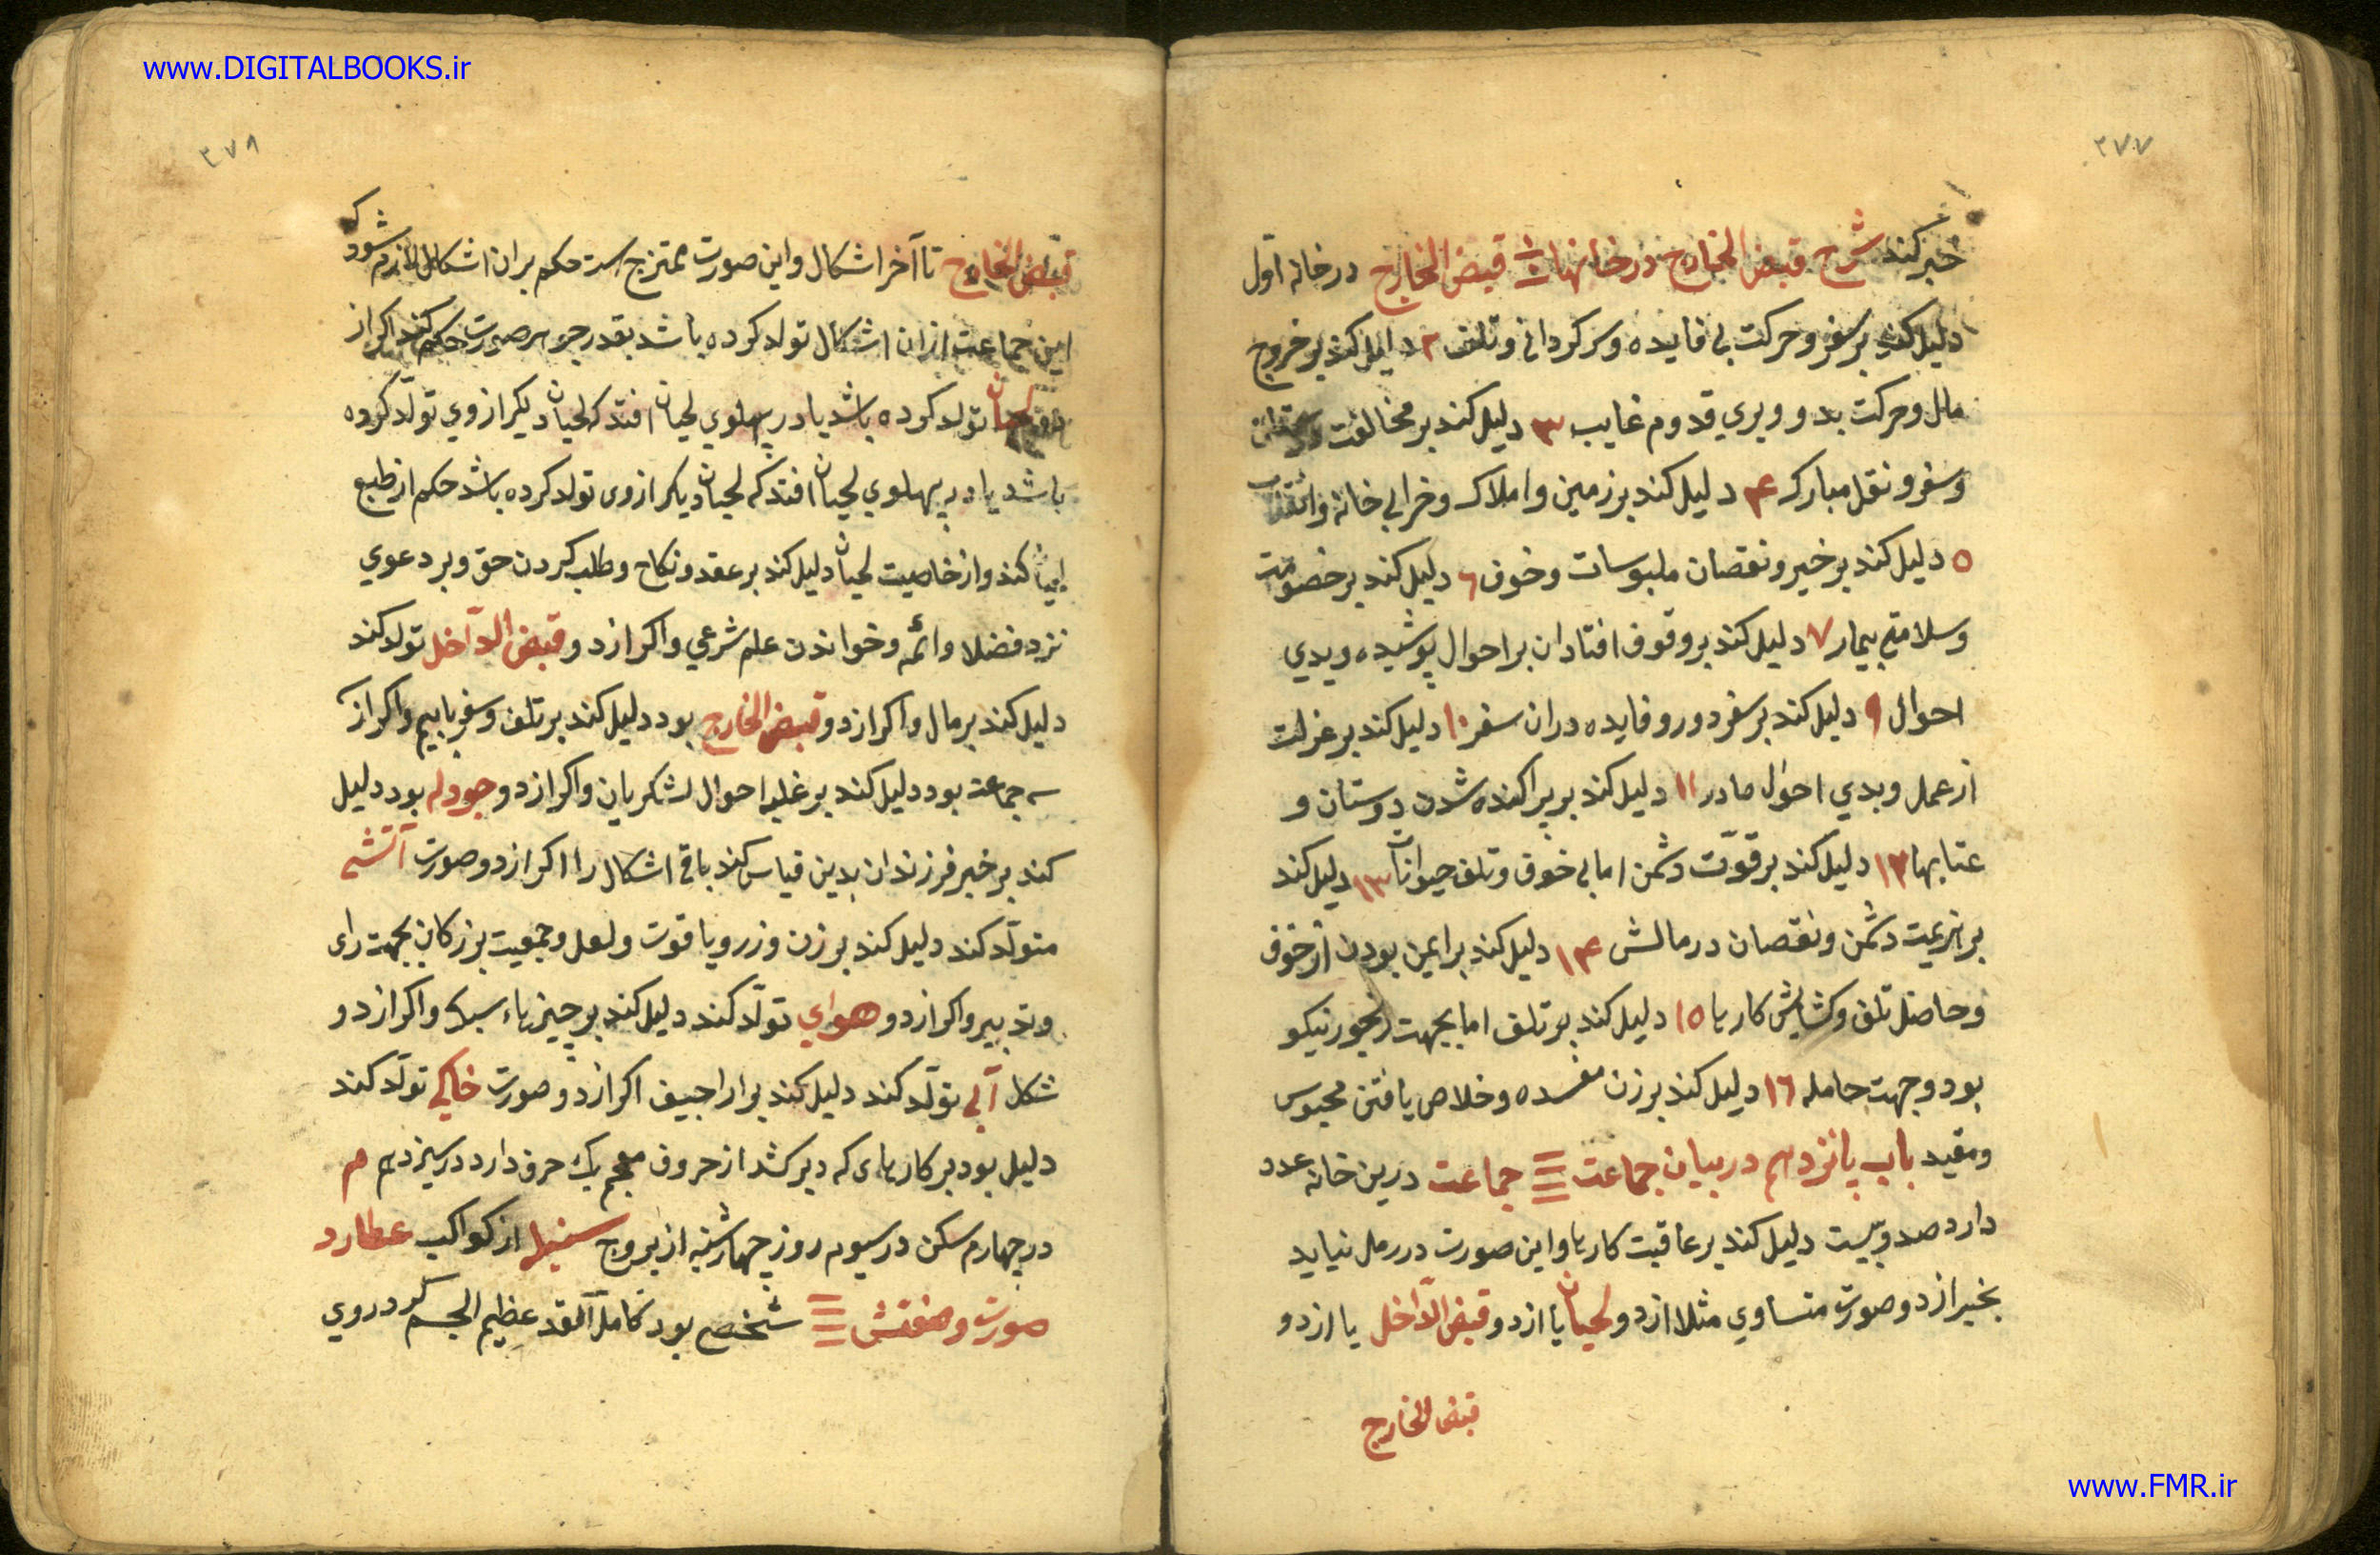 www.DIGITALBOOKS.ir
۳۷۷
خبر کند شرح قبض الخارج در خانها قبض الخارج در خانه اوّل
دلیل کند بر سفر و حرکت بی فایده و سرکردانی و تلف ۲ دلیل کند بر خروج
مال و حرکت بد و ویری قدوم غایب ۳ دلیل کند بر مخالفت
و سفر و نقل مبارک ۴ دلیل کند بر زمین و املاک و خرابی خانه
۵ دلیل کند بر خیر و نقصان ملبوسات و خوف ۶ دلیل کند بر خصومت
و سلامتی بیمار ۷ دلیل کند بر وقوف افتادن بر احوال پوشیده و بدی
احوال ۹ دلیل کند بر سفر دور و فایده دران سفر ۱۰ دلیل کند بر عزلت
از عمل و بدی احوال مادر ۱۱ دلیل کند بر پراکنده شدن دوستان و
عتابها ۱۲ دلیل کند بر قوّت دشمن اما بی خوف و تلف حیوانات ۱۳ دلیل کند
بر هزیمت دشمن و نقصان در مالش ۱۴ دلیل کند بر ایمن بودن از خوف
و حاصل تلف و کشایش کارها ۱۵ دلیل کند بر تلف اما بجهت رنجور نیکو
بود و جهت حامله ۱۶ دلیل کند بر زن مفسده و خلاص یافتن محبوس
و مقید باب پانزدهم در بیان جماعت جماعت درین خانه عدد
دارد صد و بیست دلیل کند بر عاقبت کارها و این صورت در رمل نیاید
بخیر از دو صورت متساوی مثلا از دو لحیان یا از دو قبض الدّاخل یا از دو
قبض الخارج
۳۷۸
قبض الخارج تا آخر اشکال و این صورت ممتزج است حکم بران اشکال لازم شود که
این جماعت ازان اشکال تولد کرده باشد بقدر جوهر صورت حکم کند اکر از
لحیان تولد کرده باشد یا در پهلوی لحیان افتد که لحیان دیکر از وی تولّد کرده
باشد یا در پهلوی لحیان افتد که لحیان دیکر از وی تولد کرده باشد حکم از طبع
کند و از خاصیت لحیان دلیل کند بر عقد و نکاح و طلب کردن حق و بر دعوی
نزد فضلا و ائمه و خواندن علم شرعی و اکر از دو قبض الدّاخل تولد کند
دلیل کند بر مال و اکر از دو قبض الخارج بود دلیل کند بر تلف و سفر با بیم و اکر از
جماعت بود دلیل کند بر غلبه احوال لشکریان و اکر از دو جودله بود دلیل
کند بر خبر فرزندان بدین قیاس کند باقی اشکال را اکر از دو صورت آتشی
متولّد کند دلیل کند بر زن و زر و یاقوت و لعل و جمعیت بزرکان بجهت رای
و تدبیر و اکر از دو هوای تولّد کند دلیل کند بر چیزهاء سبک و اکر از دو
شکل آبی تولّد کند دلیل کند بر اراجیف اکر از دو صورت خاکی تولّد کند
دلیل بود بر کارهای که دیر کشد از حروف معجم یک حرف دارد در سیزدهم م
در چهارم سکن در سیوم روز چهارشنبه از بروج سنبله از کواکب عطارد
صورت و صفتش شخصی بود کامل القد عظیم الجسم کرد روی
www.FMR.ir